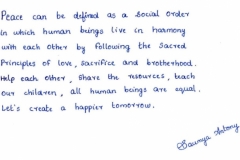 Peace can be defined as a social order
in which human beings live in harmony
with each other by following the sacred
Principles of love, sacrifice and brotherhood.
Help each other, share the resources, teach
our children, all human beings are equal.
Let's create a happier tomorrow.
Saumya Antony